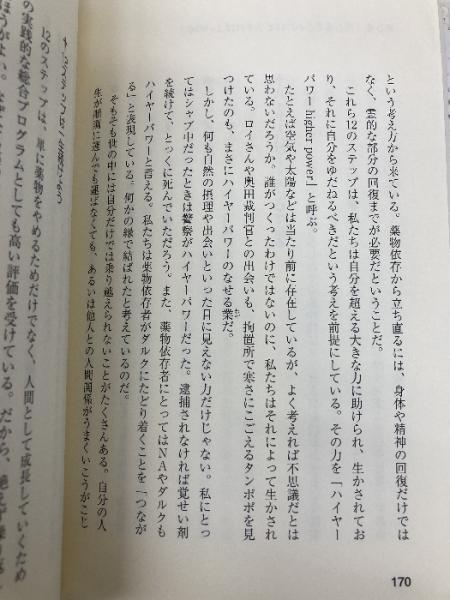 という考え方から来ている。薬物依存から立ち直るには、身体や精神の回復だけでは
なく、霊的な部分の回復までが必要だということだ。
これら12のステップは、私たちは自分を超える大きな力に助けられ、生かされてお
り、それに自分をゆだねるべきだという考えを前提にしている。その力を「ハイヤー
パワー higher power」と呼ぶ。
たとえば空気や太陽などは当たり前に存在しているが、よく考えれば不思議だとは
思わないだろうか。誰がつくったわけではないのに、私たちはそれによって生かされ
ている。ロイさんや奥田裁判官との出会いも、拘置所で寒さにこごえるタンポポを見
つけたのも、まさにハイヤーパワーのなせる業だ。
しかし、何も自然の摂理や出会いといった目に見えない力だけじゃない。私にとっ
てはシャブ中だったときは警察がハイヤーパワーだった。逮捕されなければ覚せい剤
を続けて、とっくに死んでいただろう。また、薬物依存者にとってはNAやダルクも
ハイヤーパワーと言える。私たちは薬物依存者がダルクにたどり着くことを「つなが
る」と表現している。何かの縁で結ばれたと考えているのだ。
そもそも世の中には自分だけでは乗り越えられないことがたくさんある。自分の人
生が順調に運んでも運ばなくても、あるいは他人との人間関係がうまくいこうがこじ
170
12のステップは一生続けよう
12のステップは、単に薬物をやめるためだけでなく、人間として成長していくため
の実践的な総合プログラムとしても高い評価を受けている。だから、
ほうがよい。